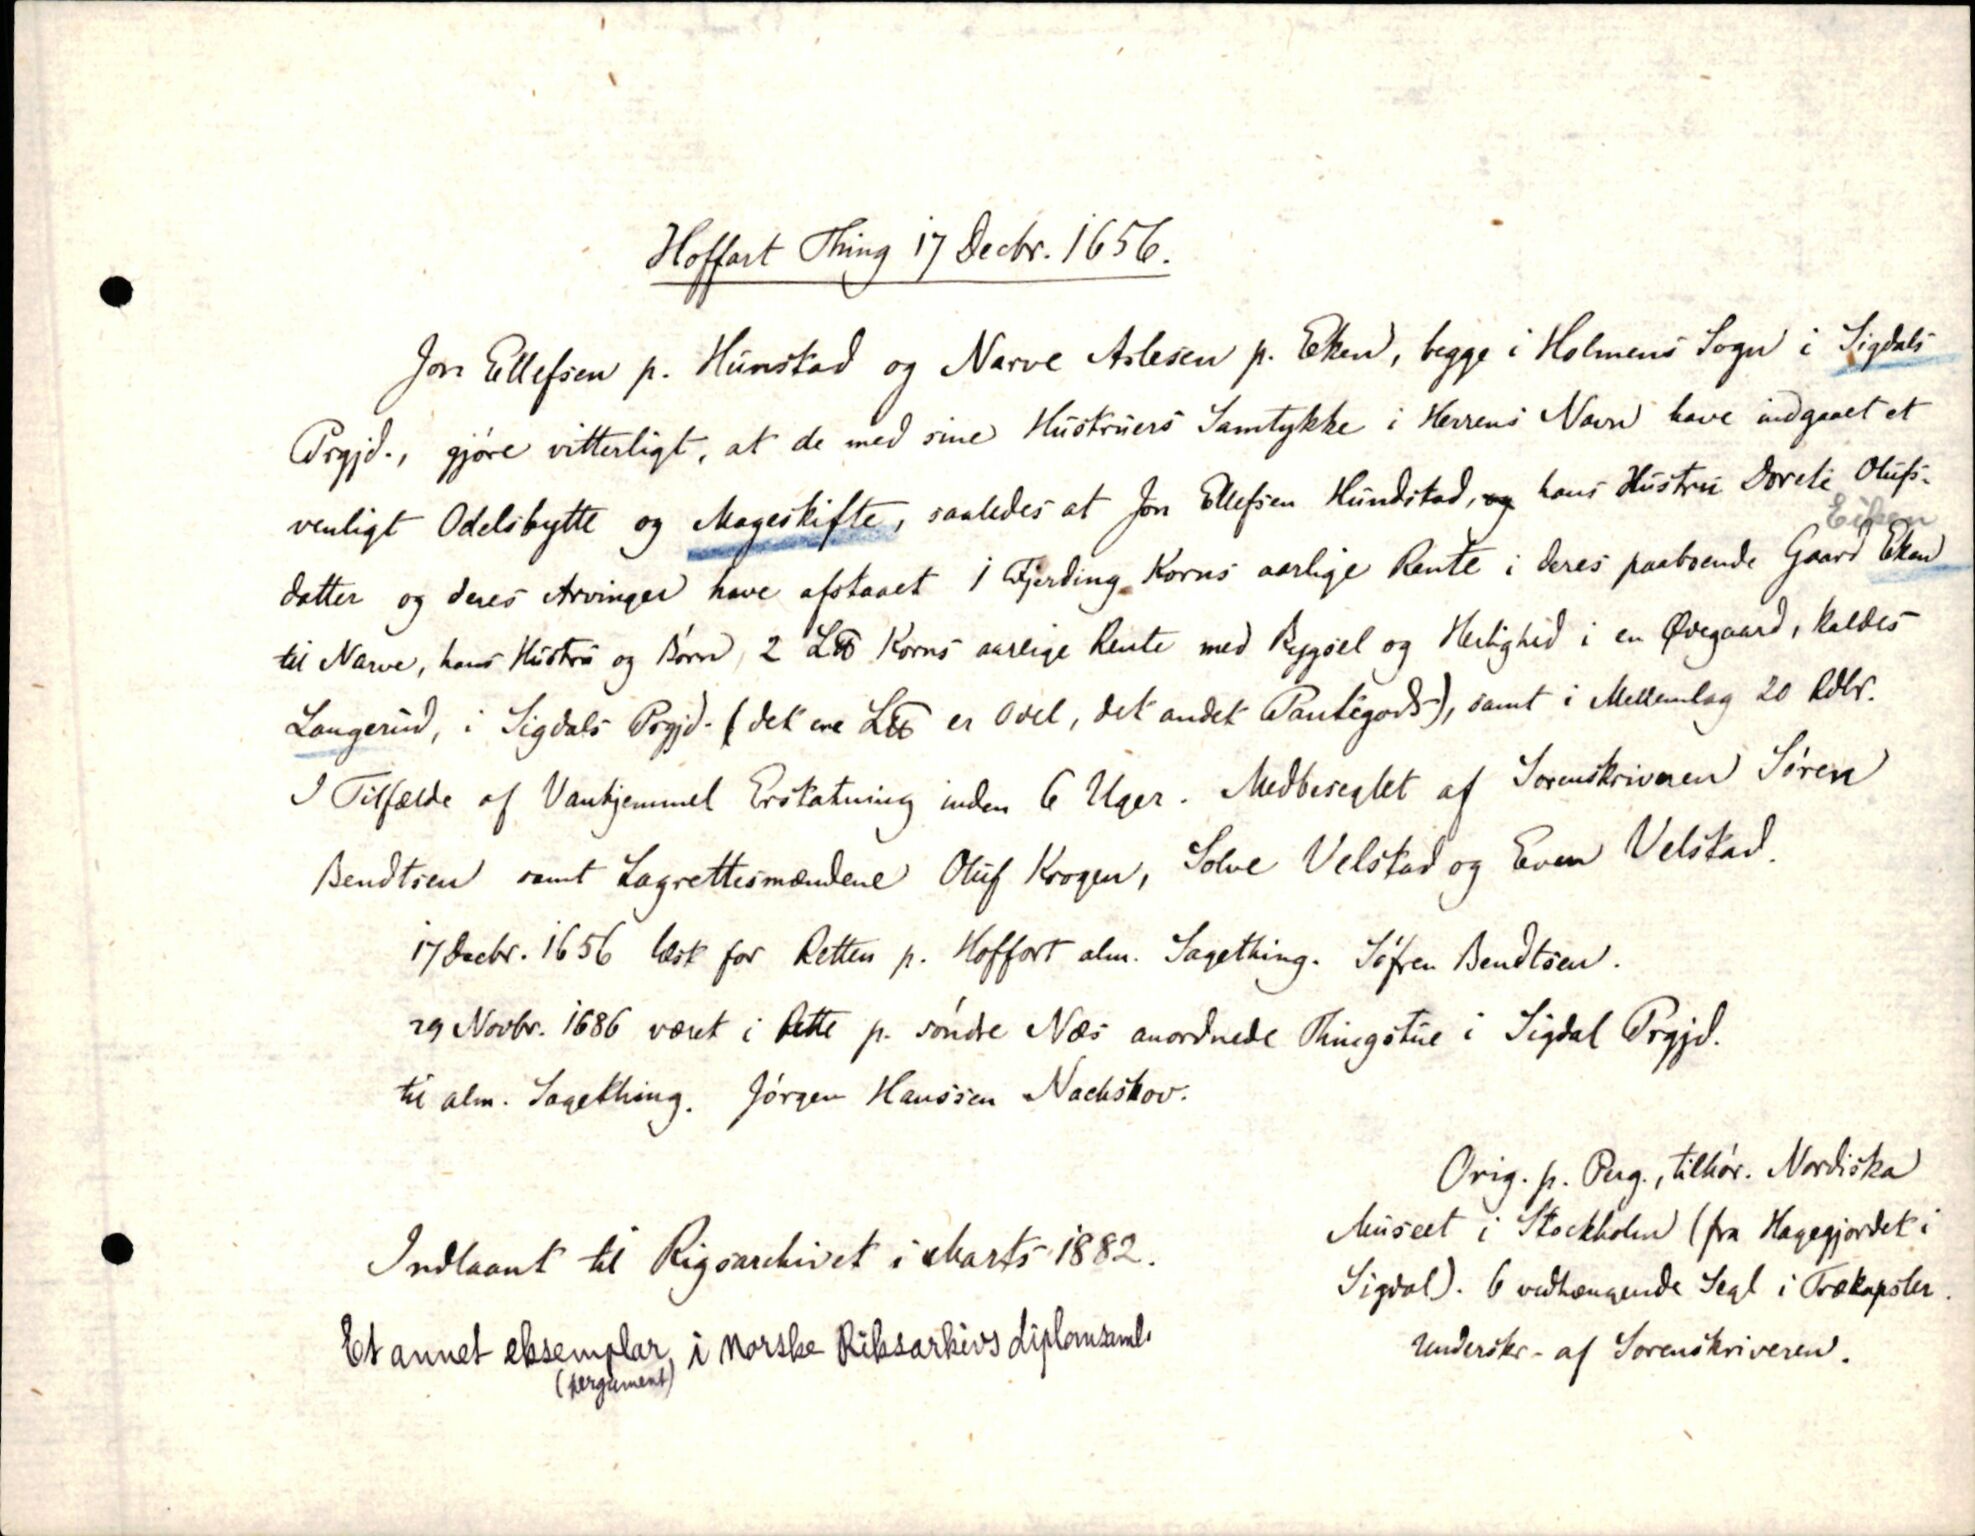 Hoffart Thing 17 Decbr. 1656.
Jon Ellefsen p. Hunstad og Narve Aslesen p. Eken, begge i Holmens Sogn i Sigdals
Prgjd., gjöre vitterligt, at de med sine Hustruers Samtykke i Herrens Navn have indgaaet et
venligt Odelsbytte og Mageskifte, saaledes at Jon Ellefsen Hundstad, og hans Hustru Dorete Olufs-
Eiken
datter og deres Arvinger have afstaaet 1 Fjerding Korns aarlige Rente i deres paaboende Gaard Eken
til Narve, hans Hustru og Börn, 2 L℔ Korns aarlige Rente med Bygsel og Herlighed i en Ødegaard, kaldes
Langerud, i Sigdals Prgjd. (det ene L℔ er Odel, det andet Pantegods), samt i Mellemlag 20 Rdlr.
I Tilfælde af Vanhjemmel Erstatning inden 6 Uger. Medbeseglet af Sorenskriveren Sören
Bendtsen samt Lagrettesmændene Oluf Krogen, Solve Velstad og Even Velstad.
17 Decbr. 1656 læst for Retten p. Hoffort alm. Sagething. Söfren Bendtsen.
29 Novbr. 1686 været i Rette p. söndre Næs anordnede Thingstue i Sigdal Prgjd.
til alm. Sagething. Jörgen Hanssen Nachskov.
Orig. p. Perg., tilhör. Nordiska
Museet i Stockholm (fra Hagegjordet i
Sigdal). 6 vedhængende Segl i Trækapsler.
Underskr. af Sorenskriveren.
Indlaant til Rigsarchivet i Marts 1882.
Et annet eksemplar i norske Riksarkivs diplomsaml.
(pergament)